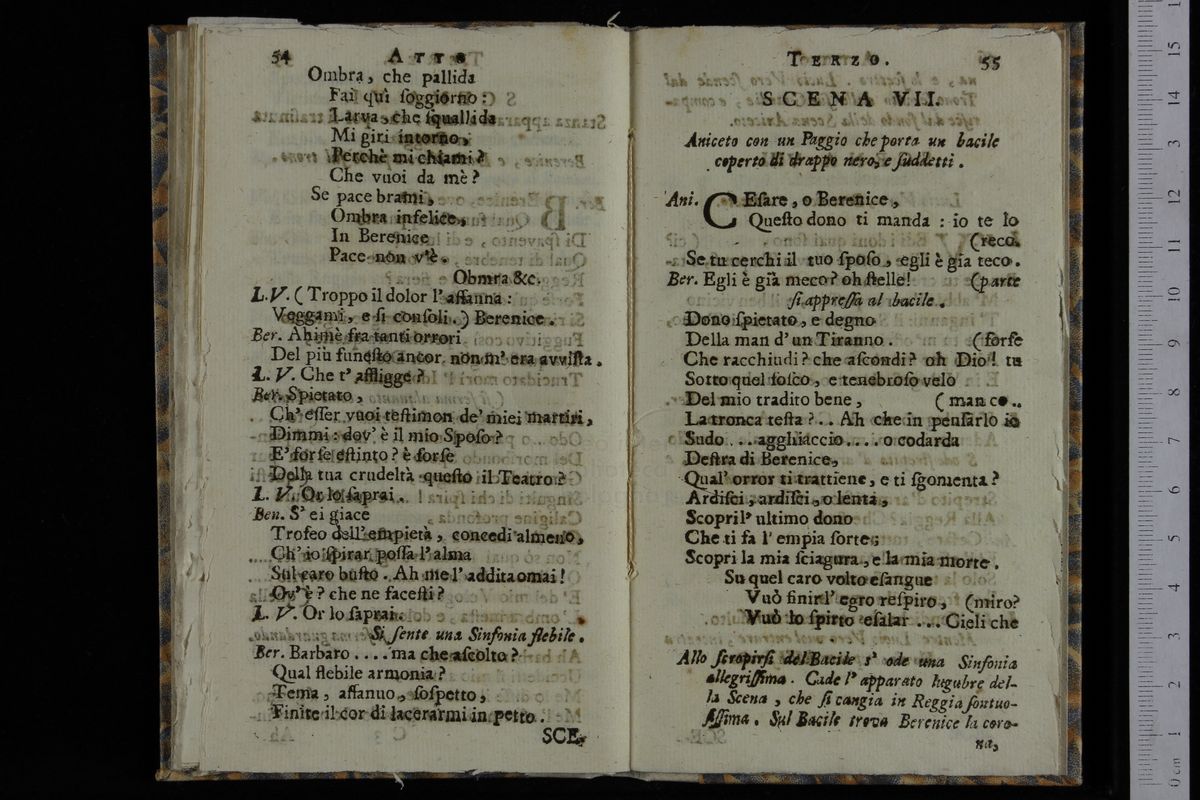 54 ATTO
Ombra, che pallida
Fai quì ſoggiorno:
Larva, che ſquallida
Mi giri intorno,
Perchè mi chiami?
Che vuoi da mè?
Se pace brami,
Ombra infelice,
In Berenice
Pace non v'è.
Obmra &c.
L.V. (Troppo il dolor l'affanna:
Veggami, e ſi conſoli.) Berenice.
Ber. Ahimè fra tanti orrori
Del più funeſto ancor non m'era avviſta.
L.V. Che t'affligge?
Ber. Spietato,
Ch'eſſer vuoi teſtimon de' miei martiri,
Dimmi: dov' è il mio Spoſo?
E' forſe eſtinto? è forſe
Della tua crudeltà queſto il Teatro?
L.V. Or lo ſaprai.
Ber. S' ei giace
Trofeo dell' empietà, concedi almeno,
Ch' io ſpirar poſſa l'alma
Sul caro buſto. Ah me l'additaomai!
Ov' è? che ne faceſti?
L.V. Or lo ſaprai.
Si ſente una Sinfonia flebile.
Ber. Barbaro .... ma che aſcolto?
Qual flebile armonia?
Tema, affanno, ſoſpetto,
Finite il cor di lacerarmi in petto.
SCE-
TERZO. 55
SCENA VII.
Aniceto con un Paggio che porta un bacile
coperto di drappo nero, e ſuddetti.
Ani. CEſare, o Berenice,
Queſto dono ti manda: io te lo
(reco.
Se tu cerchi il tuo ſpoſo, egli è gia teco.
Ber. Egli è già meco? oh ſtelle! (parte
ſi appreſſa al bacile.
Dono ſpietato, e degno
Della man d' un Tiranno. (forſe
Che racchiudi? che aſcondi? oh Dio! tu
Sotto quel foſco, e tenebroſo velo
Del mio tradito bene, (manco..
La tronca teſta?.. Ah che in penſarlo io
Sudo ... agghiaccio .... o codarda
Deſtra di Berenice,
Qual' orror ti trattiene, e ti ſgomenta?
Ardiſci, ardiſci, o lenta,
Scopri l' ultimo dono
Che ti fa l' empia ſorte;
Scopri la mia ſciagura, e la mia morte.
Su quel caro volto eſangue
Vuò finir l' egro reſpiro, (miro?
Vuò lo ſpirto eſalar .... Cieli che
Allo ſcropirſi del Bacile s' ode una Sinfonia
allegriſſima. Cade l' apparato lugubre del-
la Scena, che ſi cangia in Reggia ſontuo-
ſiſſima. Sul Bacile trova Berenice la coro-
na,